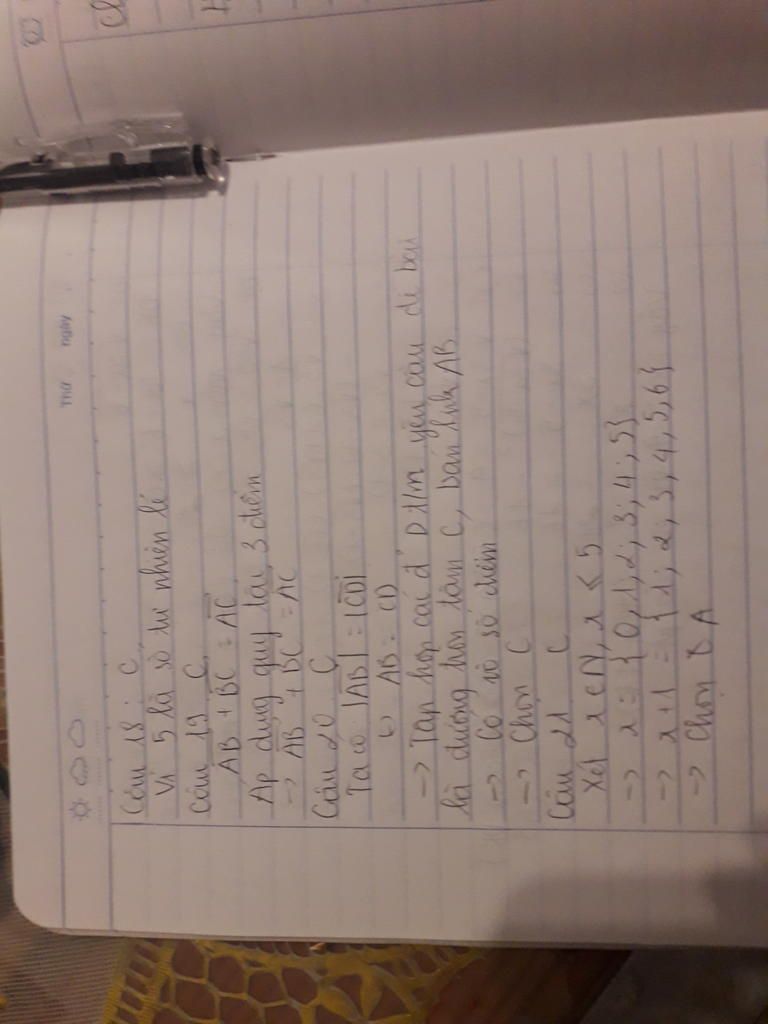 Thứ ngày
Câu 18: C
Vì 5 là số tự nhiên lẻ
Câu 19 C
AB + BC = AC
Áp dụng quy tắc 3 điểm
→ AB + BC = AC
Câu 20 C
Ta có |AB| = |CD|
AB = CD
→ Tập hợp các đ' D t/m yêu cầu đề bài
là đường tròn tâm C, bán kính AB
→ Có vô số điểm
→ Chọn C
Câu 21 C
Xét x ∈ N, x ≤ 5
→ x = { 0, 1, 2; 3; 4; 5}
→ x + 1 = { 1; 2; 3, 4, 5, 6}
→ Chọn A